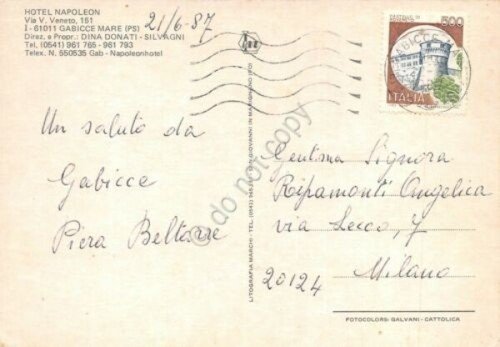 HOTEL NAPOLEON
Via V. Veneto, 151
I - 61011 GABICCE MARE (PS)
Direz. e Propr.: DINA DONATI - SILVAGNI
Tel. (0541) 961 765 - 961 793
Telex. N. 550535 Gab - Napoleonhotel
21/6-87
500
ITALIA
GABICCE
Un saluto da
Gabicce
Piera Beltarre
LITOGRAFIA MARCHI - TEL. (0541) SAN GIOVANNI IN MARIGNANO (FO)
© do not copy
Gentma Signora
Ripamonti Angelica
via Lecco, 7
20124 Milano
FOTOCOLORS: GALVANI - CATTOLICA